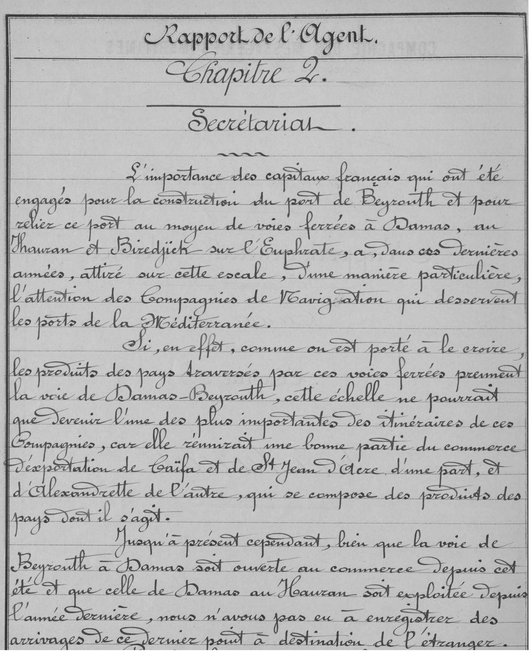 Rapport de l'Agent.
Chapitre 2.
Secrétariat.
L'importance des capitaux français qui ont été
engagés pour la construction du port de Beyrouth et pour
relier ce port au moyen de voies ferrées à Damas, au
Hauran et Biredjick sur l'Euphrate, a, dans ces dernières
années, attiré sur cette escale, d'une manière particulière,
l'attention des Compagnies de Navigation qui desservent
les ports de la Méditerranée.
Si, en effet, comme on est porté à le croire,
les produits des pays traversés par ces voies ferrées prennent
la voie de Damas-Beyrouth, cette échelle ne pourrait
que devenir l'une des plus importantes des itinéraires de ces
Compagnies, car elle réunirait une bonne partie du commerce
d'exportation de Caïfa et de St Jean d'Acre d'une part, et
d'Alexandrette de l'autre, qui se compose des produits des
pays dont il s'agit.
Jusqu'à présent cependant, bien que la voie de
Beyrouth à Damas soit ouverte au commerce depuis cet
été et que celle de Damas au Hauran soit exploitée depuis
l'année dernière, nous n'avons pas eu à enregistrer des
arrivages de ce dernier point à destination de l'étranger.